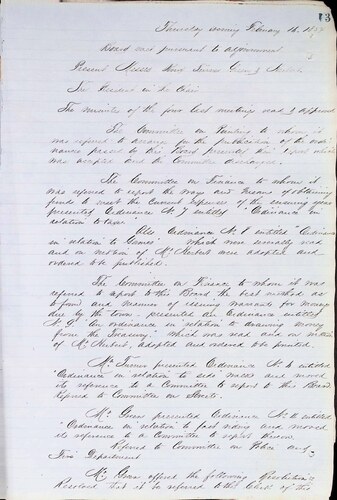 3
Thursday evening February 18, 18
Board met pursuant to adjournment
Present Messrs
The President in the Chair
The minutes of the four last meetings read & approved
The Committee on Printing to whom it
was referred to arrange for the publication of the ordi-
nances passed by this Board presented their report which
was accepted and the Committee discharged.
The Committee on Finance to whom it
was referred to report the ways and means of obtaining
funds to meet the current expenses of the ensuing year
presented Ordinance No. 7 entitled "Ordinance in
relation to
Also Ordinance No. 8 entitled "Ordinance
in relation to which were severally read
and on motion of Mr. were adopted and
ordered to be published.
The Committee on Finance to whom it was
referred to report to this Board the best method as
to form and manner of issuing warrants for money
due by the town, presented an Ordinance entitled
No. 9 "An ordinance in relation to drawing money
from the Treasury" which was read and on motion
of Mr. adopted and ordered to be printed.
Mr. presented Ordinance No. entitled
"Ordinance in relation to side walks and moved
its reference to a Committee to report to this Board
Referred to Committee on Streets.
Mr. Green presented Ordinance No. entitled
"Ordinance in relation to fast riding and moved
its reference to a Committee to report thereon
Referred to Committee on Police and
Fire Department
Mr. offered the following Resolution
Resolved that it be referred to the of the